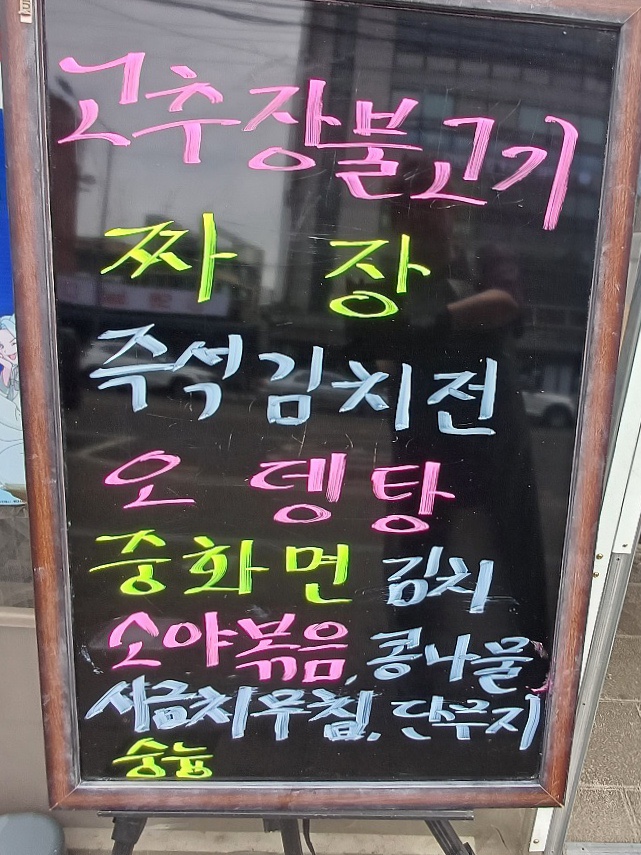 고추장불고기
짜장
즈석김치전
오뎅탕
중화면 김치
소야볶음, 콩나물
시금치무침, 단무지
숭늉